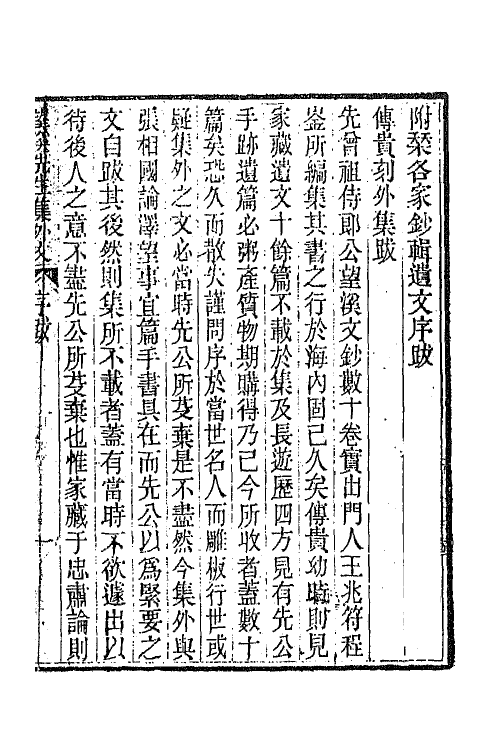 附栞各家鈔輯遺文序跋
傳貴刻外集跋
先曾祖侍郎公望溪文鈔數十卷實出門人王兆符程
崟所編集其書之行於海內固已久矣傳貴幼時則見
家藏遺文十餘篇不載於集及長遊歷四方見有先公
手跡遺篇必粥產質物期購得乃已今所收者蓋數十
篇矣恐久而散失謹問序於當世名人而雕板行世或
疑集外之文必當時先公所芟棄是不盡然今集外與
張相國論澤望事宜篇手書具在而先公以爲緊要之
文自跋其後然則集所不載者蓋有當時不欲遽出以
待後人之意不盡先公所芟棄也惟家藏于忠肅論則
先生集外文 序跋